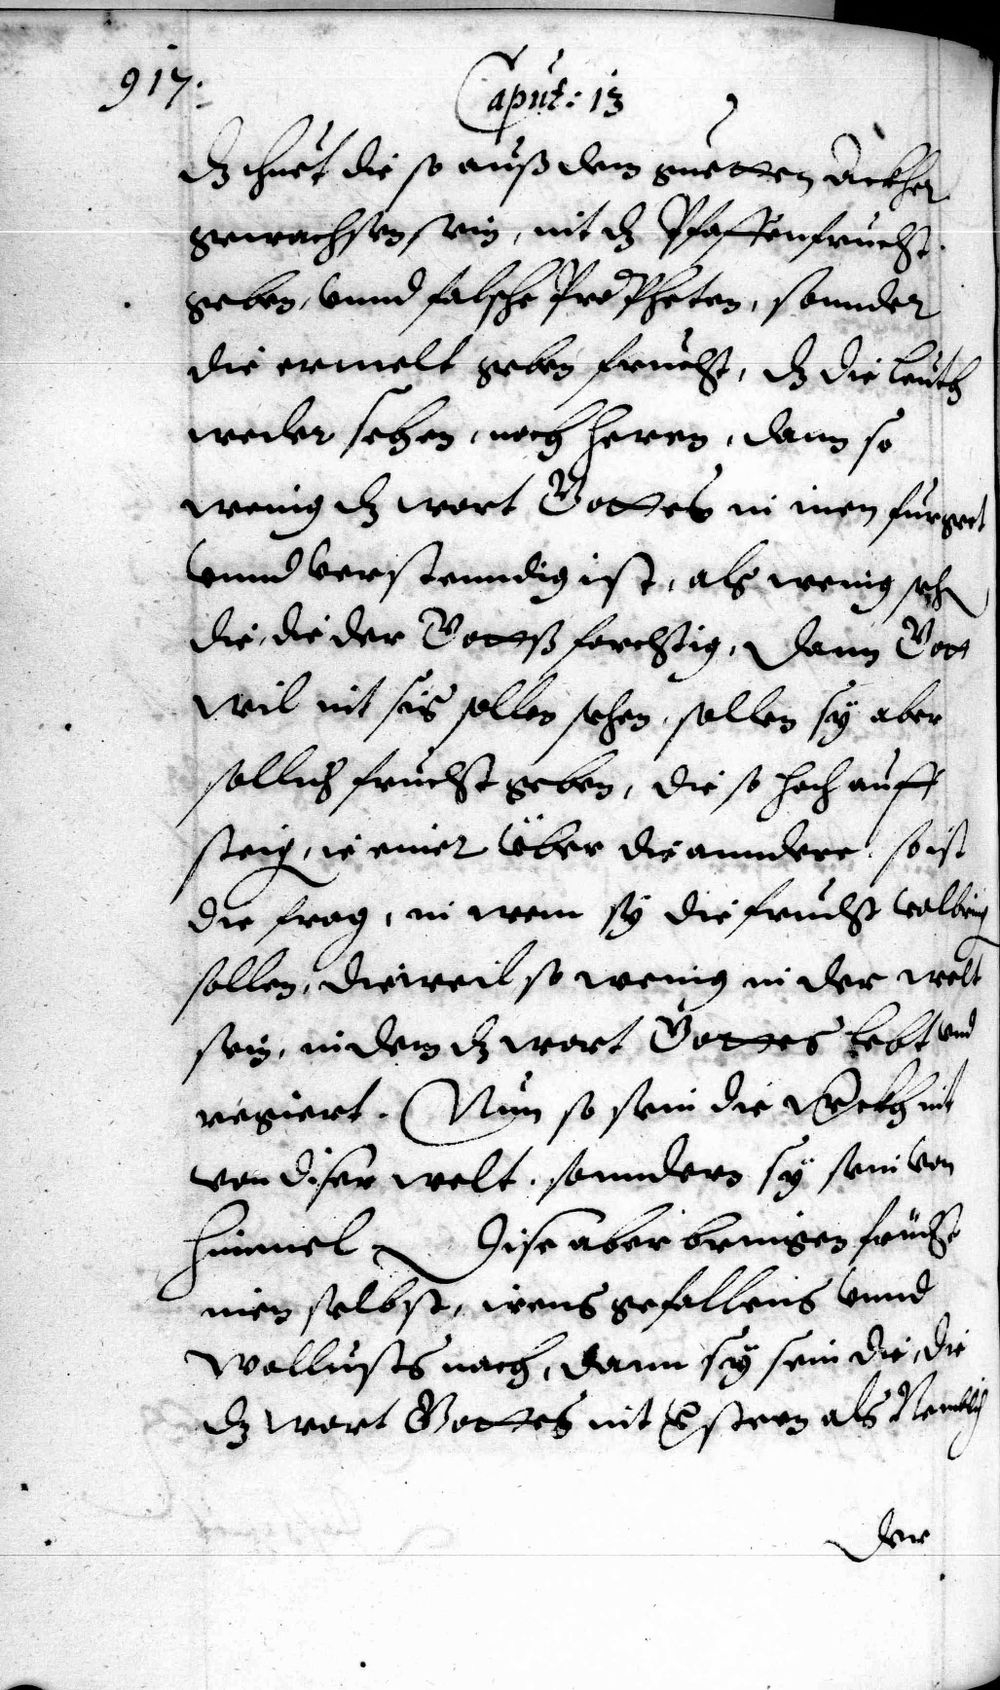 917.
Caput: 13
dz thuet die so auß dem guetten Ackher
gewachsen sein, nit dz Pfaffenfrucht
geben, vnnd falsche Propheten, sonnder
die ermelt geben frucht, dz die leuth
weder sehen, noch heren, dann so
wenig dz wort Gottes in inen furget
vnnd verstenndig ist, als wenig seh
die, die der Gottß forchtig, dann Gott
wil nit sis sollen sehen, sollen sÿ aber
sollich frucht geben, die so hoch auff
steig, ie einer über die anndere, so ist
die frag, in wem sÿ die frucht volbring
sollen, dieweil so wenig in der welt
sein, in dem dz wort Gottes lebt vnd
regiert. Nun so sein die nit
von diser welt, sonndern sÿ sein von
himmel Dise aber bringen frücht
inen selbst, irens gefallens vnnd
wollusts nach, dann sÿ sein die, die
dz wort Gottes nit als Nemblich
der